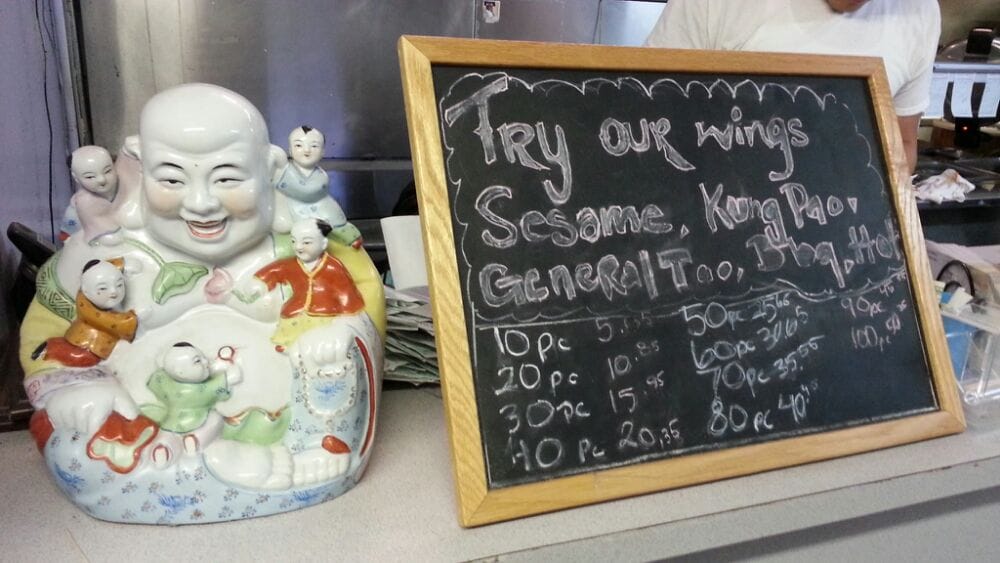 Try our wings
Sesame, Kung Pao,
General Tao, Bbq, Hot
10 pc 5.
20 pc 10.
30 pc 15.95
40 pc 20.35
50 pc 25.65
60 pc
70 pc 35.
80 pc 40.
90 pc
100 pc